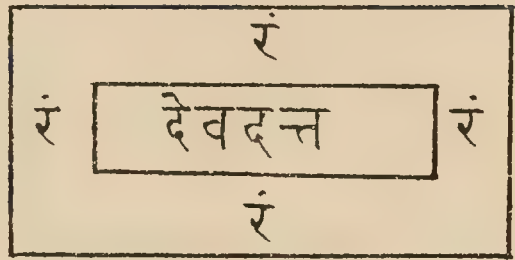 रं
रं देवदत्त रं
रं